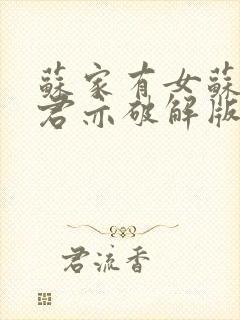 蘇家有女蘇
君亦破解版
君流香